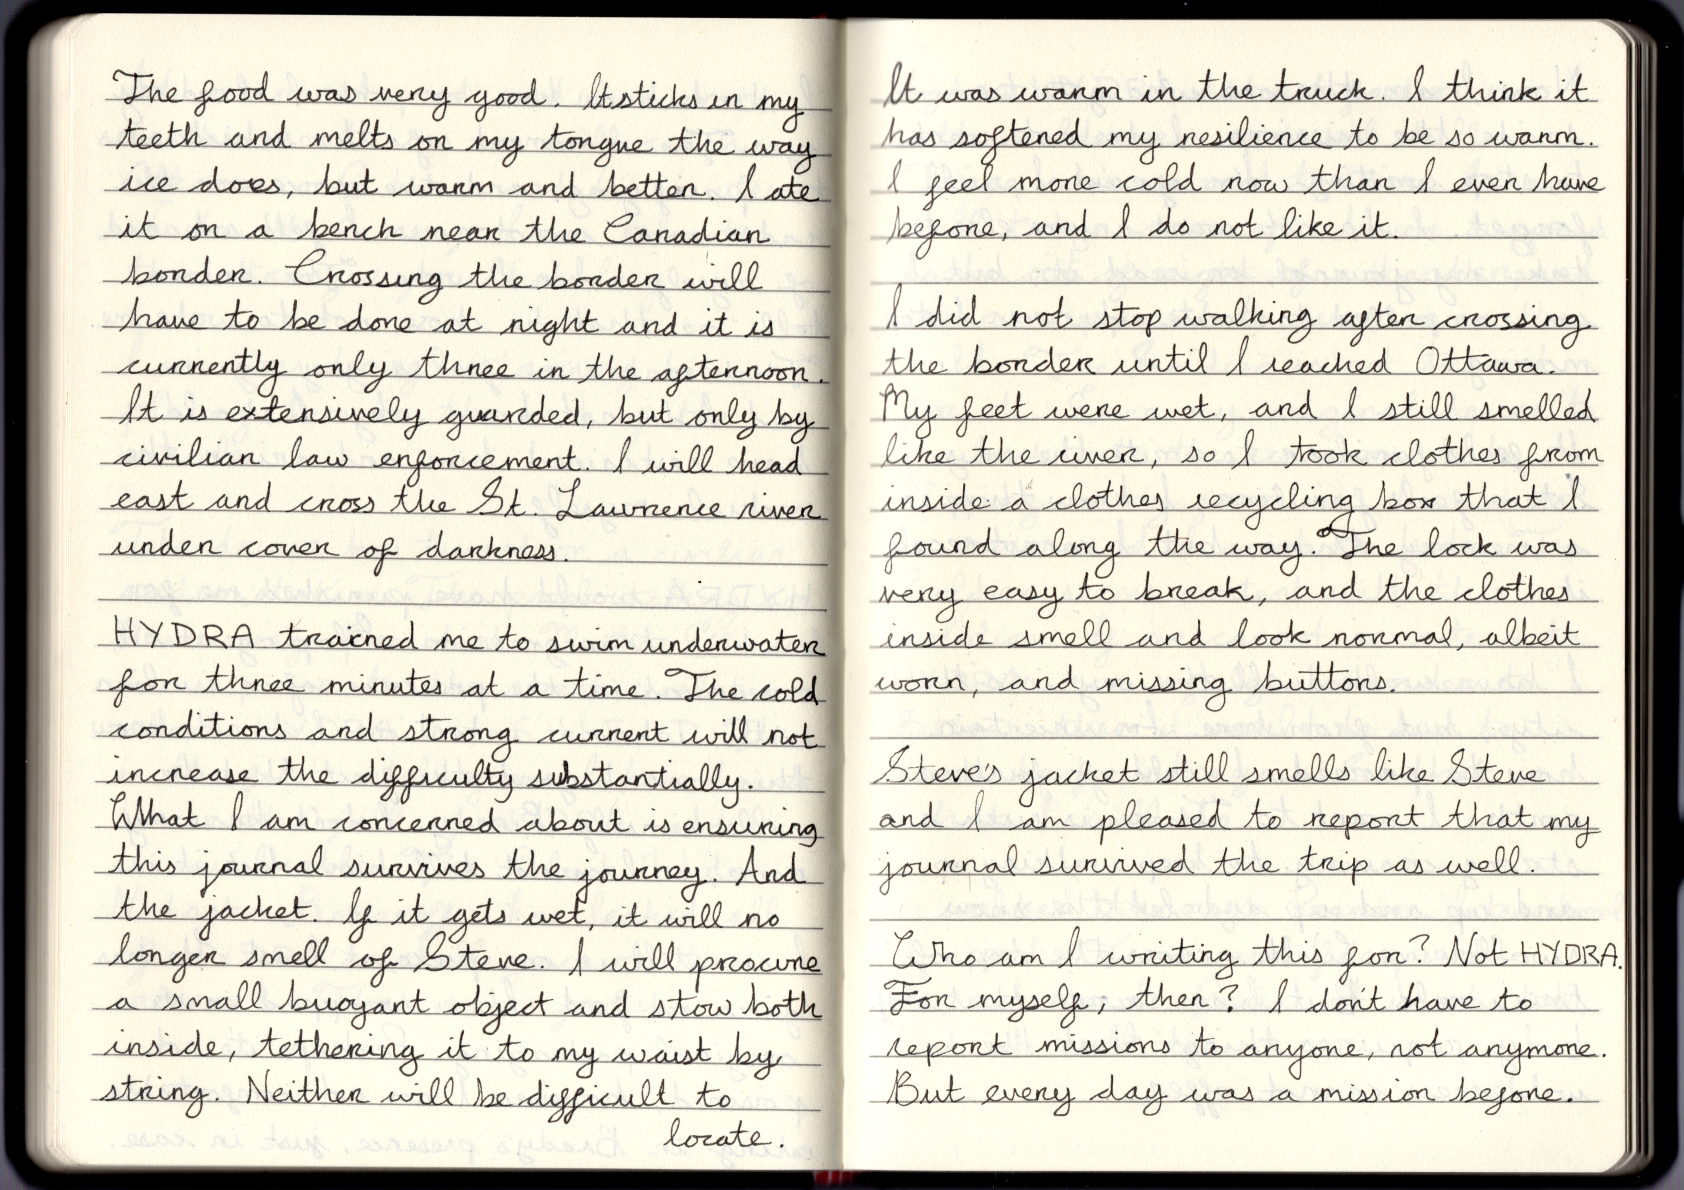 The food was very good. It sticks in my
teeth and melts on my tongue the way
ice does, but warm and better. I ate
it on a bench near the Canadian
border. Crossing the border will
have to be done at night and it is
currently only three in the afternoon.
It is extensively guarded, but only by
civilian law enforcement. I will head
east and cross the St. Lawrence river
under cover of darkness.
HYDRA trained me to swim underwater
for three minutes at a time. The cold
conditions and strong current will not
increase the difficulty substantially.
What I am concerned about is ensuring
this journal survives the journey. And
the jacket. If it gets wet, it will no
longer smell of Steve. I will procure
a small buoyant object and stow both
inside, tethering it to my waist by
string. Neither will be difficult to
locate.
It was warm in the truck. I think it
has softened my resilience to be so warm.
I feel more cold now than I ever have
before, and I do not like it.
I did not stop walking after crossing
the border until I reached Ottawa.
My feet were wet, and I still smelled
like the river, so I took clothes from
inside a clothes recycling box that I
found along the way. The lock was
very easy to break, and the clothes
inside smell and look normal, albeit
worn, and missing buttons.
Steve's jacket still smells like Steve
and I am pleased to report that my
journal survived the trip as well.
Who am I writing this for? Not HYDRA.
For myself, then? I don't have to
report missions to anyone, not anymore.
But every day was a mission before.